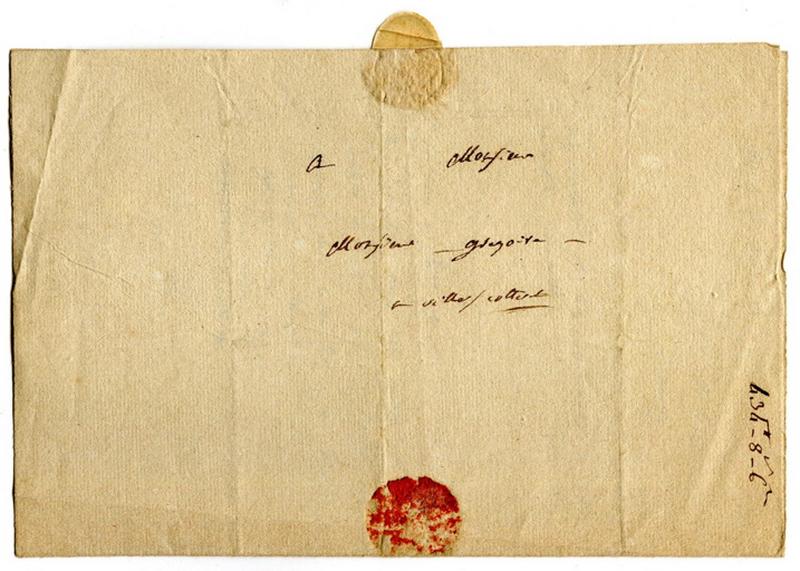 A Monsieur
Monsieur gregoire
a villers cotteret
434ᵗᵗ-8ˢ-6ᵈ